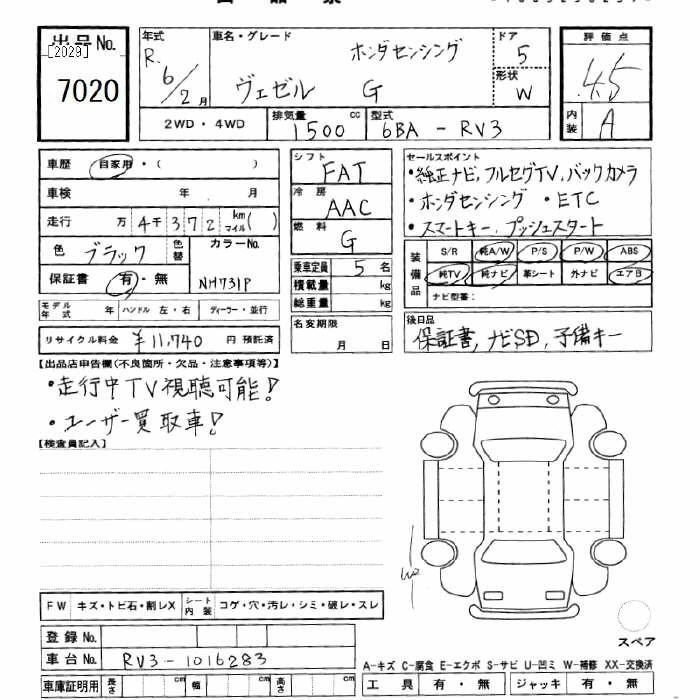 出品No. [2029] 7020
年式 R. 6/2月
車名・グレード ホンダセンシング
ヴェゼル G
ドア 5
形状 W
評価点 4.5
内装 A
2WD・4WD
排気量 1500 cc
型式 6BA-RV3
車歴 自家用・( )
車検 年 月
走行 万 4千372 km マイル( )
色 ブラック 色替 カラーNo.
保証書 有・無 NH731P
モデル年式 年 ハンドル 左・右 ディーラー・並行
リサイクル料金 ¥11,740 円 預託済
シフト FAT
冷房 AAC
燃料 G
乗車定員 5名
積載量 kg
総重量 kg
名変期限 月 日
セールスポイント
・純正ナビ,フルセグTV,バックカメラ
・ホンダセンシング ・ETC
・スマートキー,プッシュスタート
装備品 S/R 純A/W P/S P/W ABS
純TV 純ナビ 革シート 外ナビ エアB
ナビ型番:
後日品
保証書,ナビSD,予備キー
【出品店申告欄(不良箇所・欠品・注意事項等)】
・走行中TV視聴可能!
・ユーザー買取車!
【検査員記入】
W2
FW キズ・トビ石・割レX シート内装 コゲ・穴・汚レ・シミ・破レ・スレ
登録No.
車台No. RV3-1016283
車庫証明用 長さ cm 幅 cm 高さ cm
スペア
A-キズ C-腐食 E-エクボ S-サビ U-凹ミ W-補修 XX-交換済
工具 有・無 ジャッキ 有・無